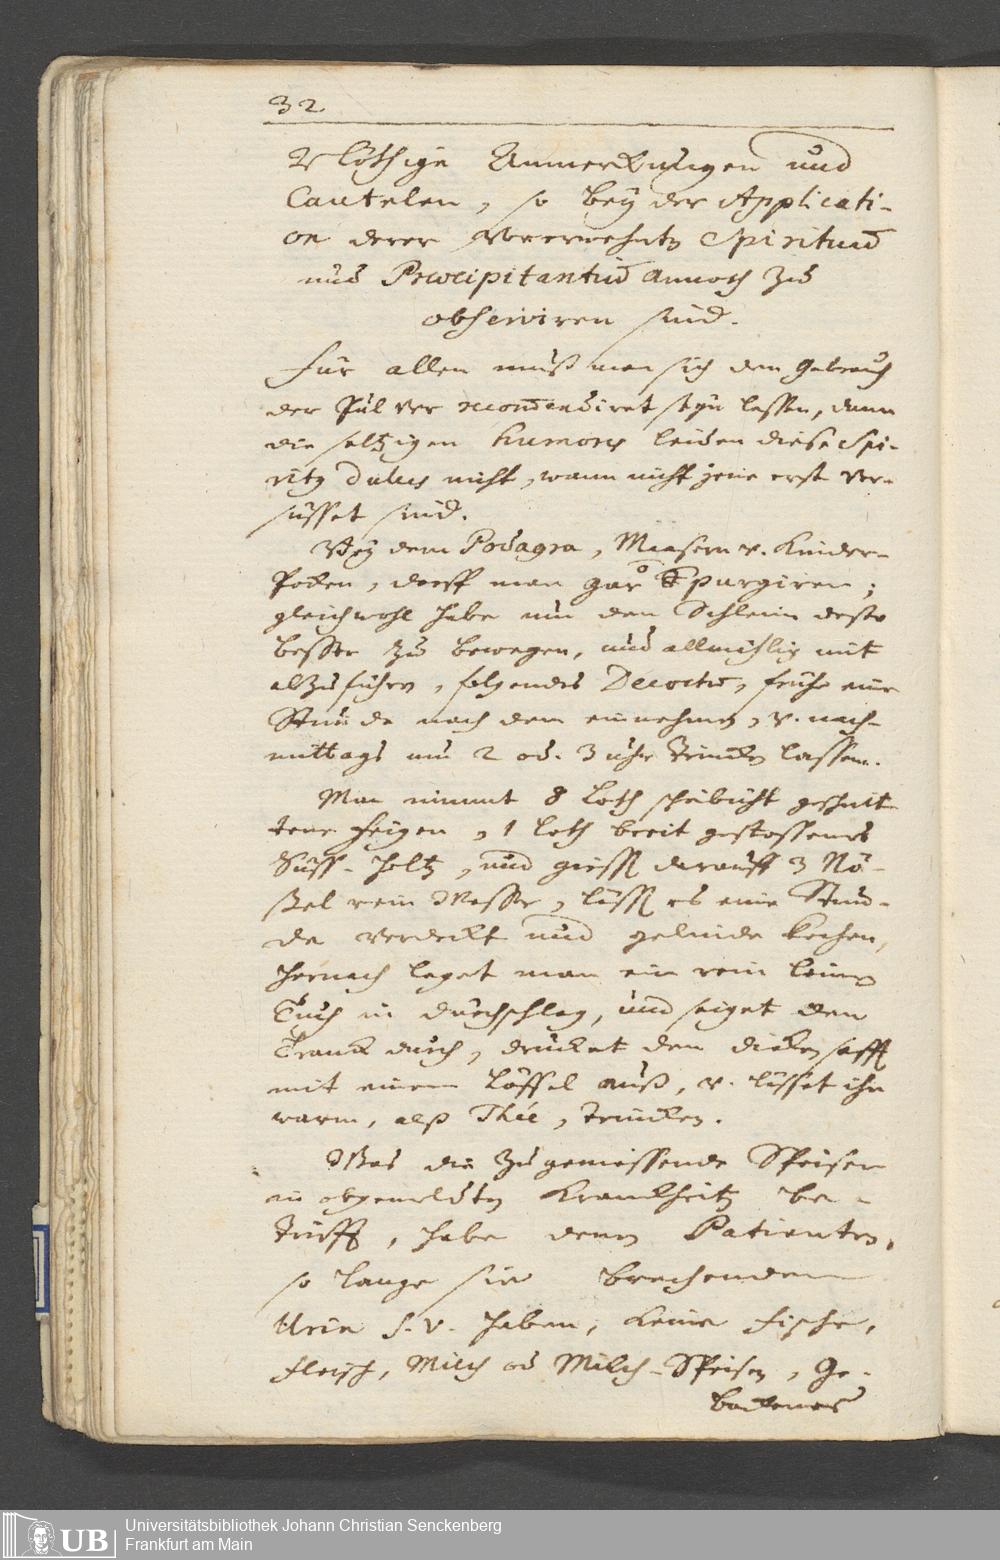 32
Nöthige Anmerckungen und
Cautelen, so bey der Applicati-
on derer Spirituū
und Præcipitantiū annoch zu
observiren sind.
Für allen muß man sich den Gebrauch
der Pulver recom̄endiret seyn lassen, dann
die saltzigen humores leiden diese Spi-
ritg dulces nicht, wann nicht jene erst ver-
süsset sind.
Bey dem Podagra, Maasern v. Kinder-
Pocken, darff man gar purgiren;
gleichwohl habe um den Schleim desto
besser zu bewegen, und allmählig mit
abzuführen, folgendes Decoctū, frühe eine
Stunde nach dem einnehmen, v. nach-
mittags um 2 od. 3 uhr trincken lassen.
Man nimmt 8 Loth scheibicht geschnit
tene Feigen, 1 loth breit gestossenes
Süss-holtz, und giesst darauff 3 Nö-
ßel rein Wasser, lässt es eine Stun-
de verdeckt und gelinde kochen,
hernach leget man ein rein leinen
Tuch in durchschlag, und seiget den
Tranck durch, drücket den dicken safft
mit einem Löffel auß, v. lässet ihn
warm, alß Thée, trincken.
Was die zu geniessende Speisen
in obgemeldten Kranckheiten be-
trifft, habe denen Patienten,
so lange sie brechenden
Urin s. v. haben, keine Fische,
Fleisch, Milch od Milch-Speisen, Ge-
backenes
Universitätsbibliothek Johann Christian Senckenberg
Frankfurt am Main
UB